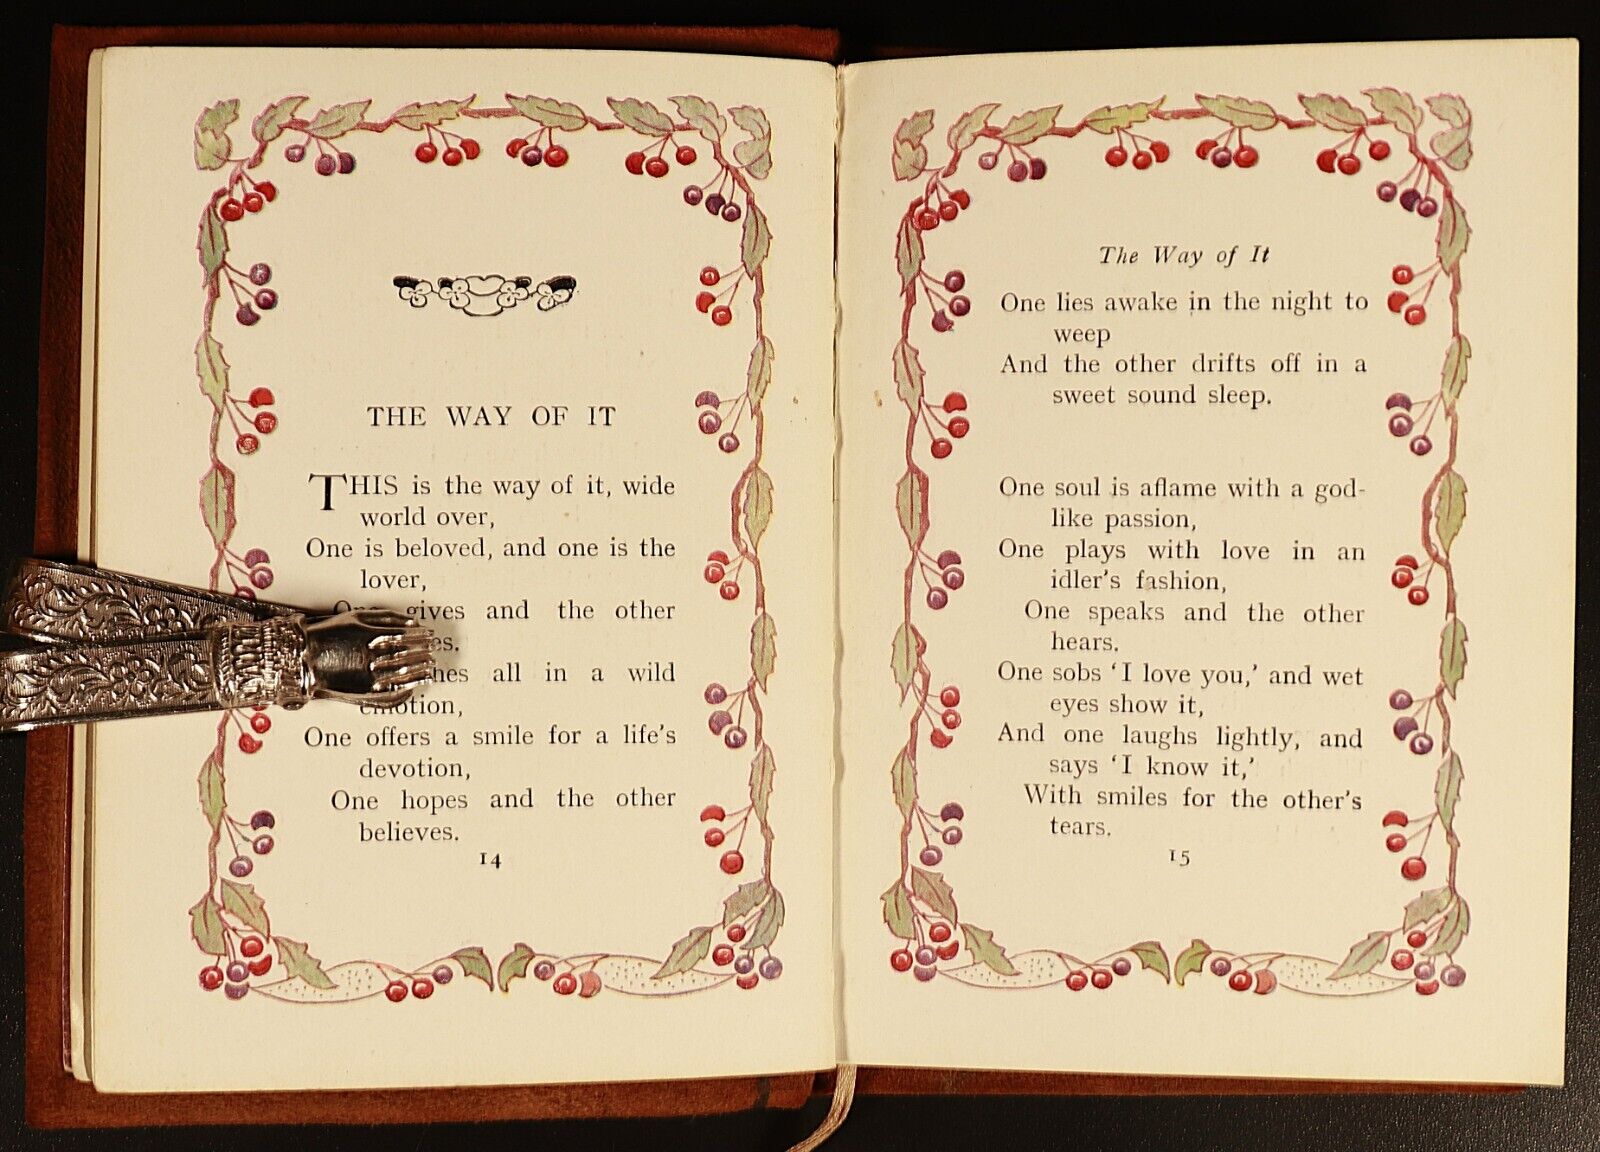 THE WAY OF IT
THIS is the way of it, wide
world over,
One is beloved, and one is the
lover,
One gives and the other
all in a wild
emotion,
One offers a smile for a life's
devotion,
One hopes and the other
believes.
14
The Way of It
One lies awake in the night to
weep
And the other drifts off in a
sweet sound sleep.
One soul is aflame with a god-
like passion,
One plays with love in an
idler's fashion,
One speaks and the other
hears.
One sobs ‘I love you,’ and wet
eyes show it,
And one laughs lightly, and
says ‘I know it,’
With smiles for the other's
tears.
15